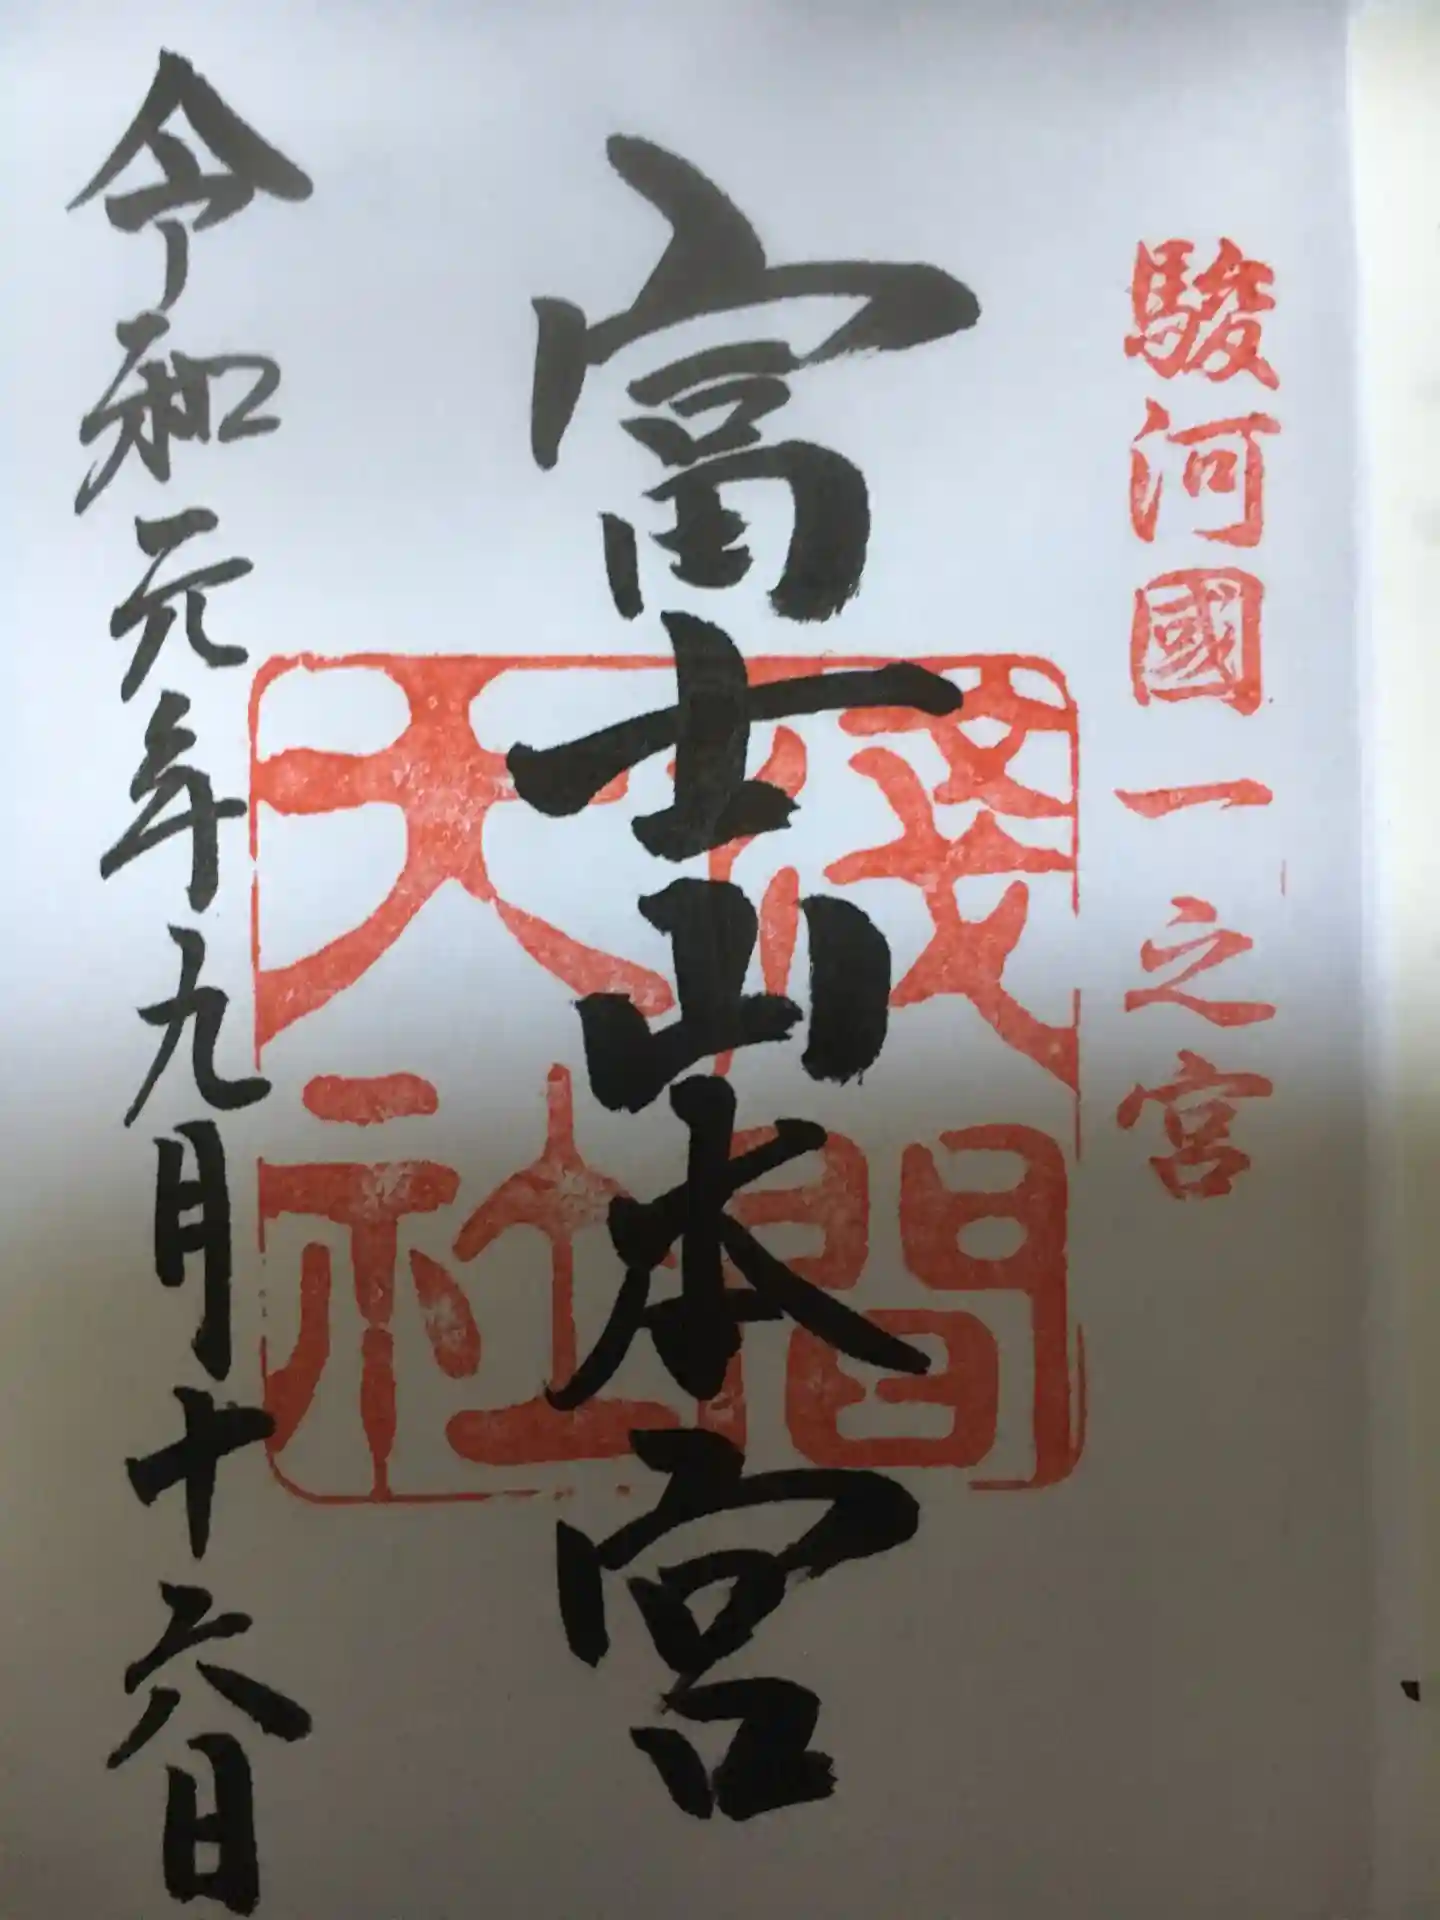 駿河國一之宮
富士山本宮
浅間
大社
令和元年九月十六日